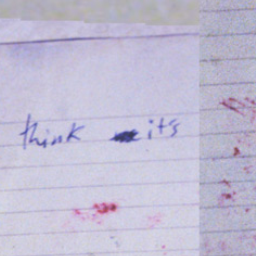 think its